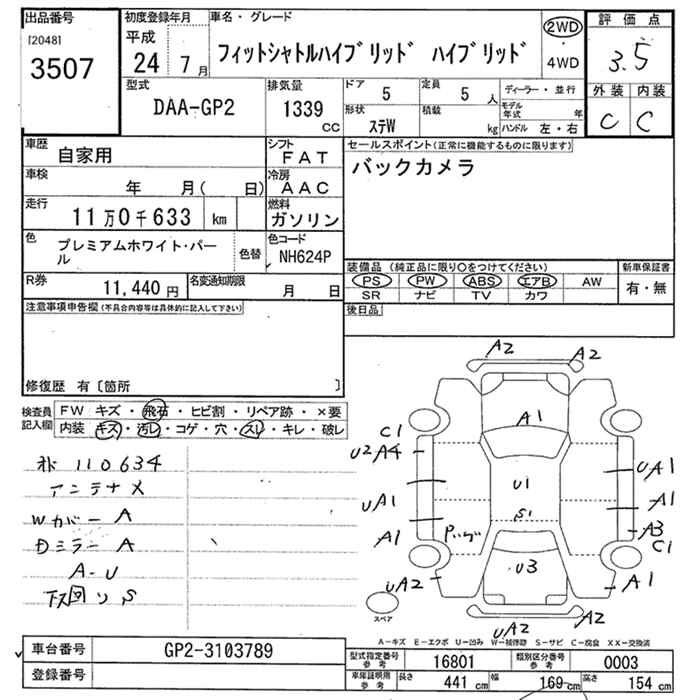 出品番号
[2048]
3507
初度登録年月
平成
24 7月
車名・グレード
フィットシャトルハイブリッド ハイブリッド
2WD
4WD
評価点
3.5
外装 内装
C C
型式
DAA-GP2
排気量
1339 cc
ドア 5
定員 5 人
形状 ステW
積載 kg
ディーラー・並行
モデル年式 年
ハンドル 左・右
車歴
自家用
シフト
FAT
車検
年 月( 日)
冷房
AAC
走行
11万0千633 km
燃料
ガソリン
色
プレミアムホワイト・パール
色替
色コード
NH624P
R券
11,440 円
名変通知期限
月 日
セールスポイント(正常に機能するものに限ります)
バックカメラ
装備品 (純正品に限り○をつけてください)
PS PW ABS エアB AW
SR ナビ TV カワ
新車保証書
有・無
後日品
注意事項申告欄(不具合内容等は具体的に記入して下さい)
修復歴 有〔箇所 〕
検査員記入欄
FW キズ・飛石・ヒビ割・リペア跡・×要
内装 キズ・汚レ・コゲ・穴・スレ・キレ・破レ
110634
アンテナメ
Wカバー A
Dミラー A
A-U
下回リ S
A2 A2
A1
C1
U2 A4
UA1
A1
UA2
U1
S1
U3
UA1
A1
A3
C1
A1
UA2 A2
スペア
A-キズ E-エクボ U-凹み W-補修跡 S-サビ C-腐食 XX-交換済
車台番号
GP2-3103789
登録番号
型式指定番号 参考
16801
類別区分番号 参考
0003
車庫証明用 参考
長さ 441 cm
幅 169 cm
高さ 154 cm